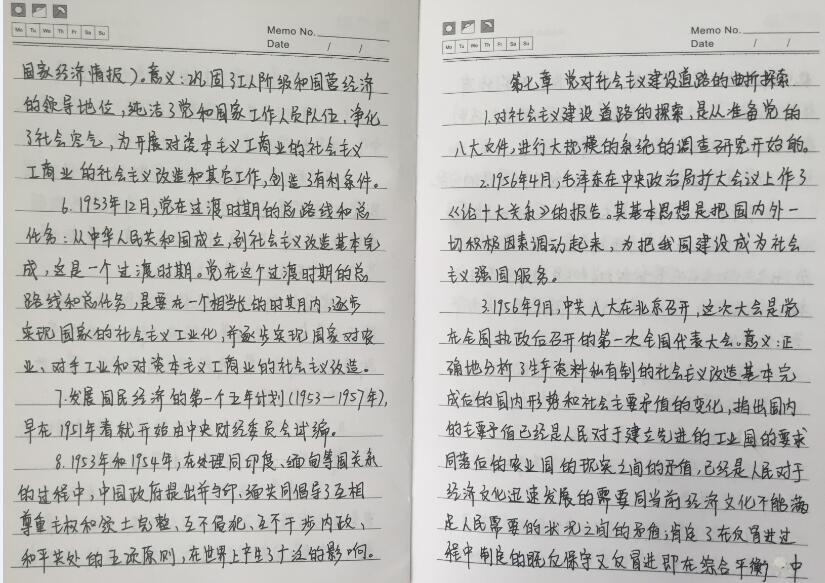 Mo Tu We Th Fr Sa Su
Memo No.
Date / /
国家经济情报)。意义:巩固了工人阶级和国营经济
的领导地位,纯洁了党和国家工作人员队伍,净化
了社会空气,为开展对资本主义工商业的社会主义
工商业的社会主义改造和其它工作,创造了有利条件。
6.1953年12月,党在过渡时期的总路线和总
任务:从中华人民共和国成立,到社会主义改造基本完
成,这是一个过渡时期。党在这个过渡时期的总
路线和总任务,是要在一个相当长的时期内,逐步
实现国家的社会主义工业化,并逐步实现国家对农
业、对手工业和对资本主义工商业的社会主义改造。
7.发展国民经济的第一个五年计划(1953—1957年),
早在1951年春就开始由中央财经委员会试编。
8.1953年和1954年,在处理同印度、缅甸等国关系
的过程中,中国政府提出并与印、缅共同倡导了互相
尊重主权和领土完整、互不侵犯、互不干涉内政、
和平共处的五项原则,在世界上产生了广泛的影响。
Mo Tu We Th Fr Sa Su
Memo No.
Date / /
第七章 党对社会主义建设道路的曲折探索
1.对社会主义建设道路的探索,是从准备党的
八大文件,进行大规模的系统的调查研究开始的。
2.1956年4月,毛泽东在中央政治局扩大会议上作了
《论十大关系》的报告。其基本思想是把国内外一
切积极因素调动起来,为把我国建设成为社会
主义强国服务。
3.1956年9月,中共八大在北京召开,这次大会是党
在全国执政后召开的第一次全国代表大会。意义:正
确地分析了生产资料私有制的社会主义改造基本完
成后的国内形势和社会主要矛盾的变化,指出国内
的主要矛盾已经是人民对于建立先进的工业国的要求
同落后的农业国的现实之间的矛盾,已经是人民对于
经济文化迅速发展的需要同当前经济文化不能满
足人民需要的状况之间的矛盾;肯定了在反冒进过
程中制定的既反保守又反冒进即在综合平衡 中